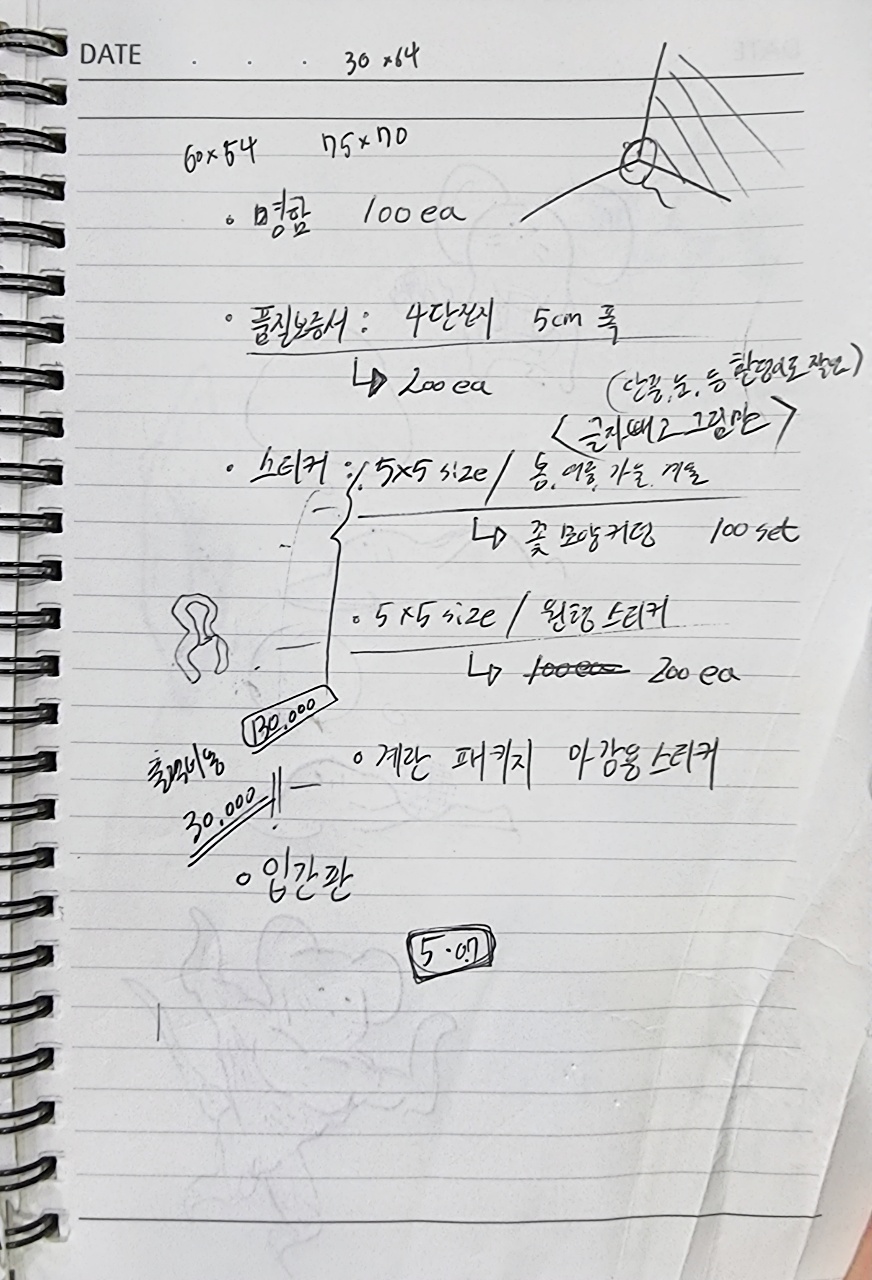 DATE . . . 30 x 64
60 x 54 75 x 70
• 명함 100 ea
• 품질보증서 : 4단전지 5cm 폭
↳ 200 ea
(단풍, 눈, 등
<글자빼고 그림만>
• 스티커 : 5x5 size / 봄, 여름, 가을, 겨울
↳ 꽃모양커팅 100 set
• 5x5 size / 원형스티커
↳ 100 ea 200 ea
130,000
• 계란 패키지 마감용스티커
출력비용
30.000
• 입간판
5.07